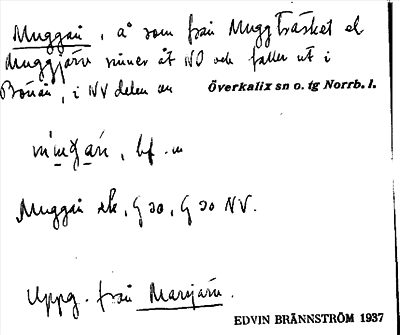 Muggån, å som från Muggträsket el
Muggjärv rinner åt NO och faller ut i
Bönån, i NV delen av Överkalix sn o. tg Norrb. l.
bf. m
Muggån ek, G 30, G 30 NV.
Uppg. från Marijärv.
EDVIN BRÄNNSTRÖM 1937